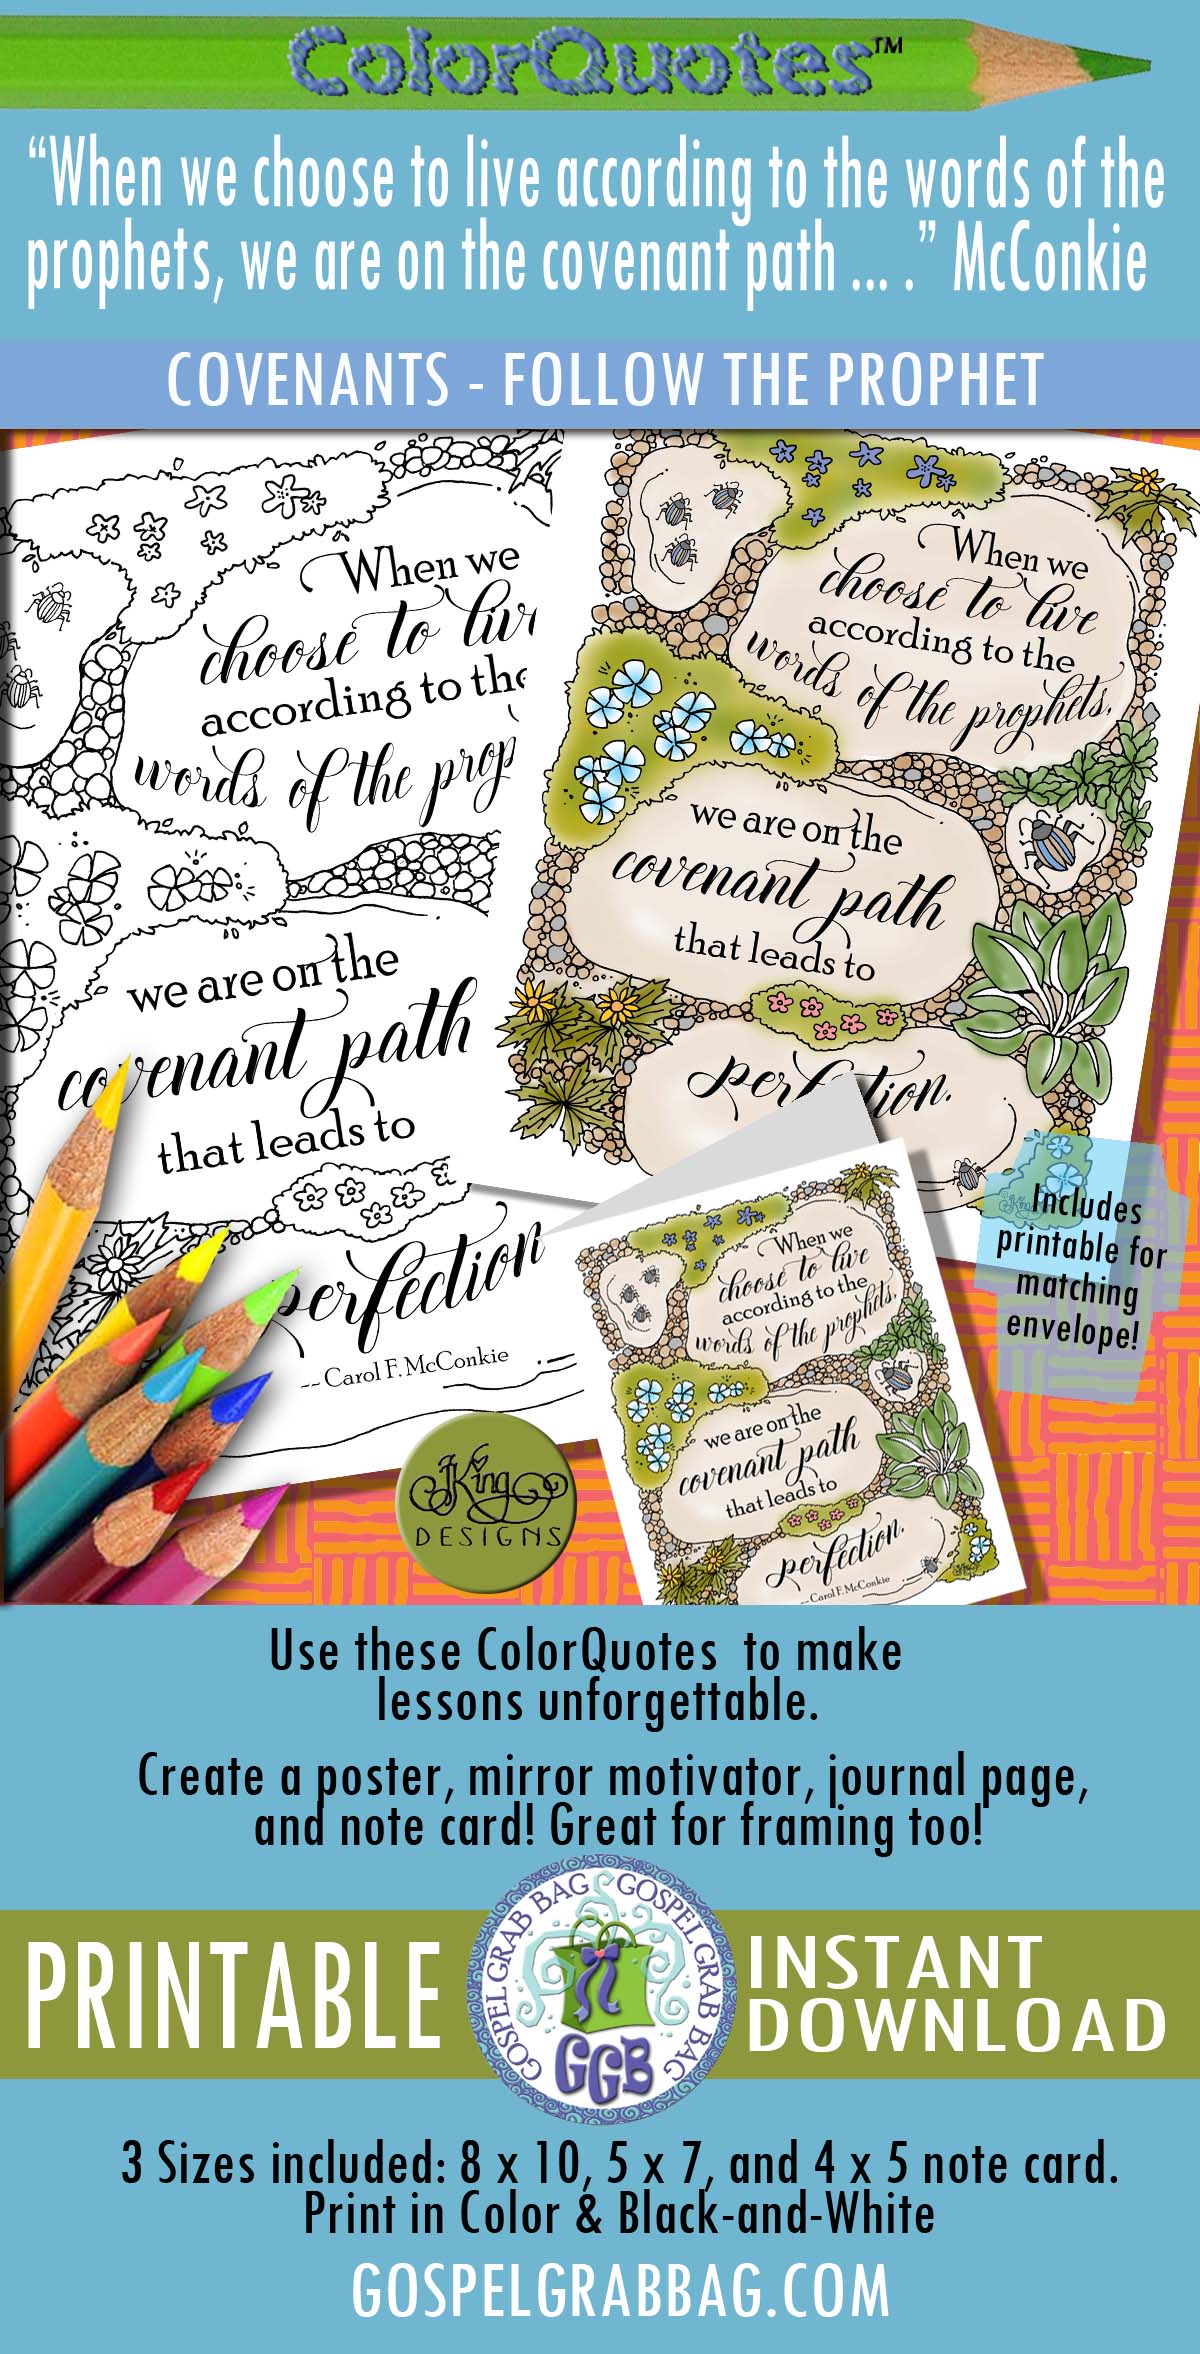 ColorQuotes™
“When we choose to live according to the words of the
prophets, we are on the covenant path ... .” McConkie
COVENANTS - FOLLOW THE PROPHET
When we
choose to liv
according to the
words of the prop
we are on the
covenant path
that leads to
perfection
-- Carol F. McConkie
When we
choose to live
according to the
words of the prophets,
we are on the
covenant path
that leads to
perfection.
Includes
printable for
matching
envelope!
When we
choose to live
according to the
words of the prophets,
we are on the
covenant path
that leads to
perfection.
-- Carol F. McConkie
JKing
DESIGNS
Use these ColorQuotes to make
lessons unforgettable.
Create a poster, mirror motivator, journal page,
and note card! Great for framing too!
PRINTABLE
GOSPEL GRAB BAG GOSPEL GRAB BAG
GGB
INSTANT
DOWNLOAD
3 Sizes included: 8 x 10, 5 x 7, and 4 x 5 note card.
Print in Color & Black-and-White
GOSPELGRABBAG.COM